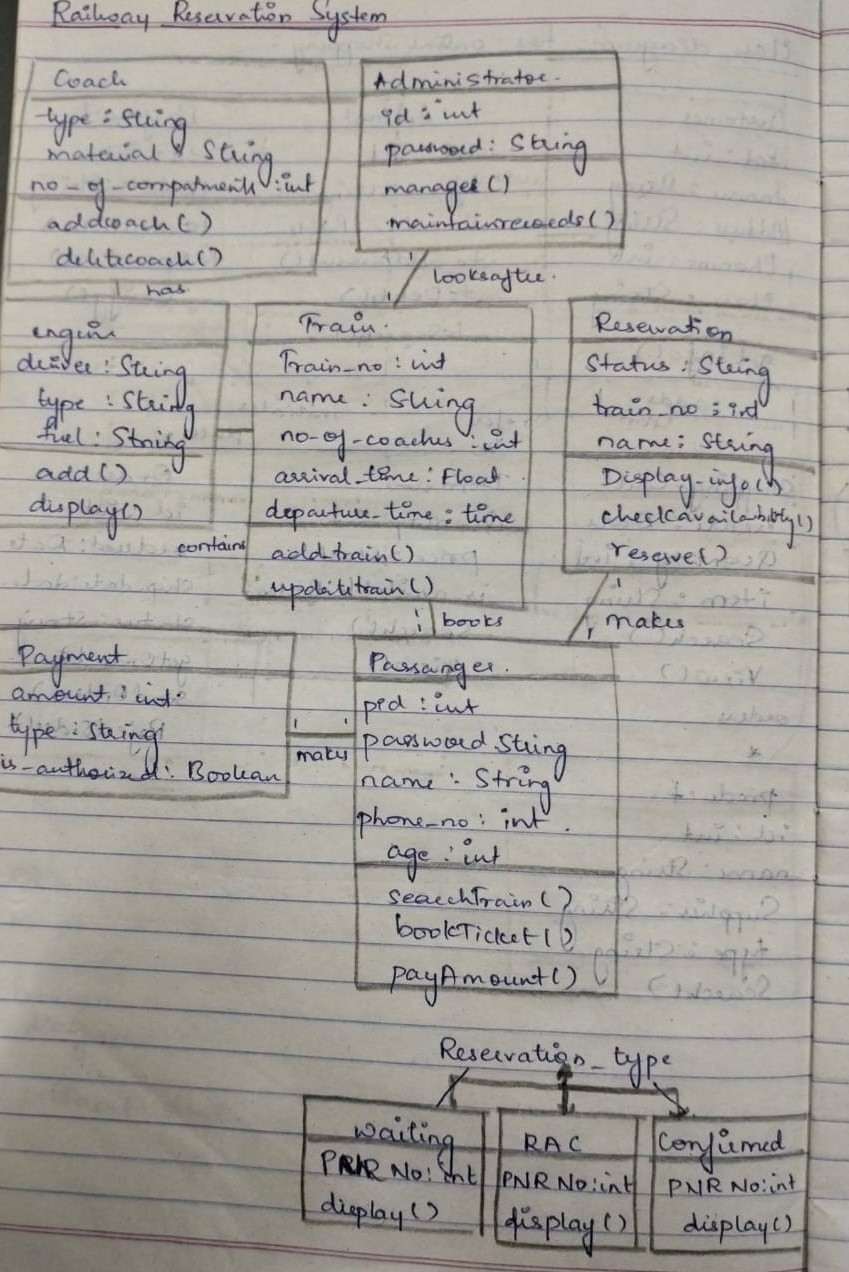 Railway Reservation System
Coach
type : String
material : String
no-of-compatments : int
addcoach()
deletecoach()
has
Administrator.
id : int
password : String
manages()
maintainrecords()
looksafter.
engine
driver : String
type : String
fuel : String
add()
display()
contains
Train.
Train_no : int
name : String
no-of-coaches : int
arrival_time : Float
departure_time : time
add_train()
updatetrain()
books
Reservation
Status : String
train_no : int
name : String
Display-info()
checkavailability()
reserve()
makes
Payment
amount : int
type : String
is-authorized : Boolean
makes
Passanger.
pid : int
password String
name : String
phone_no : int.
age : int
searchTrain()
bookTicket()
payAmount()
Reservation_type
waiting
PNR No: int
display()
RAC
PNR No:int
display()
Confirmed
PNR No:int
display()